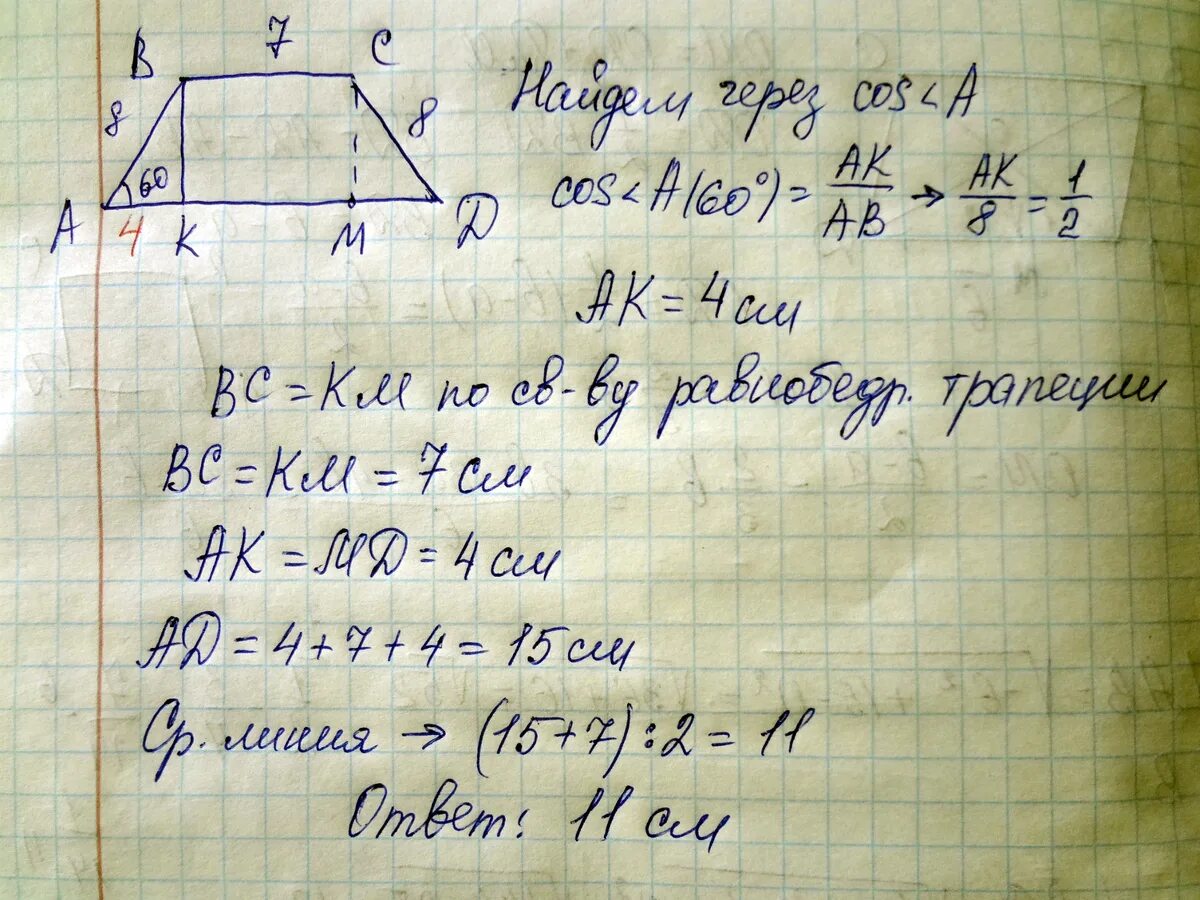 7
B C
8 8
60
A 4 K M D
Найдем через cos<A
cos<A(60°) = AK/AB → AK/8 = 1/2
AK = 4 см
BC = KM по св-ву равнобедр. трапеции
BC = KM = 7 см
AK = MD = 4 см
AD = 4 + 7 + 4 = 15 см
Ср. линия → (15+7) : 2 = 11
Ответ: 11 см